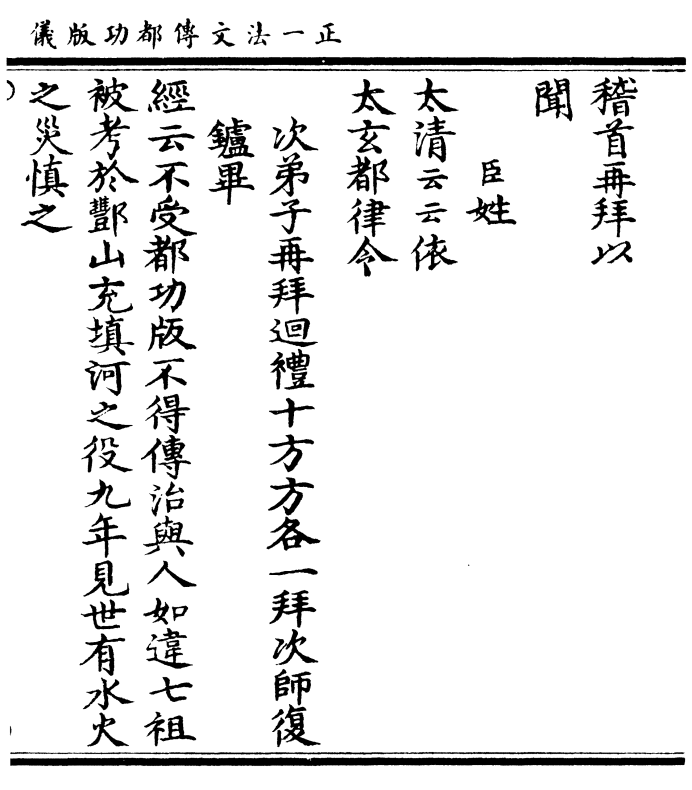 正一法文傳都功版儀
稽首再拜以
聞
臣姓
太清云云依
太玄都律令
次弟子再拜迴禮十方方各一拜次師復
鑪畢
經云不受都功版不得傳治與人如違七祖
被考於酆山充填河之役九年見世有水火
之災慎之